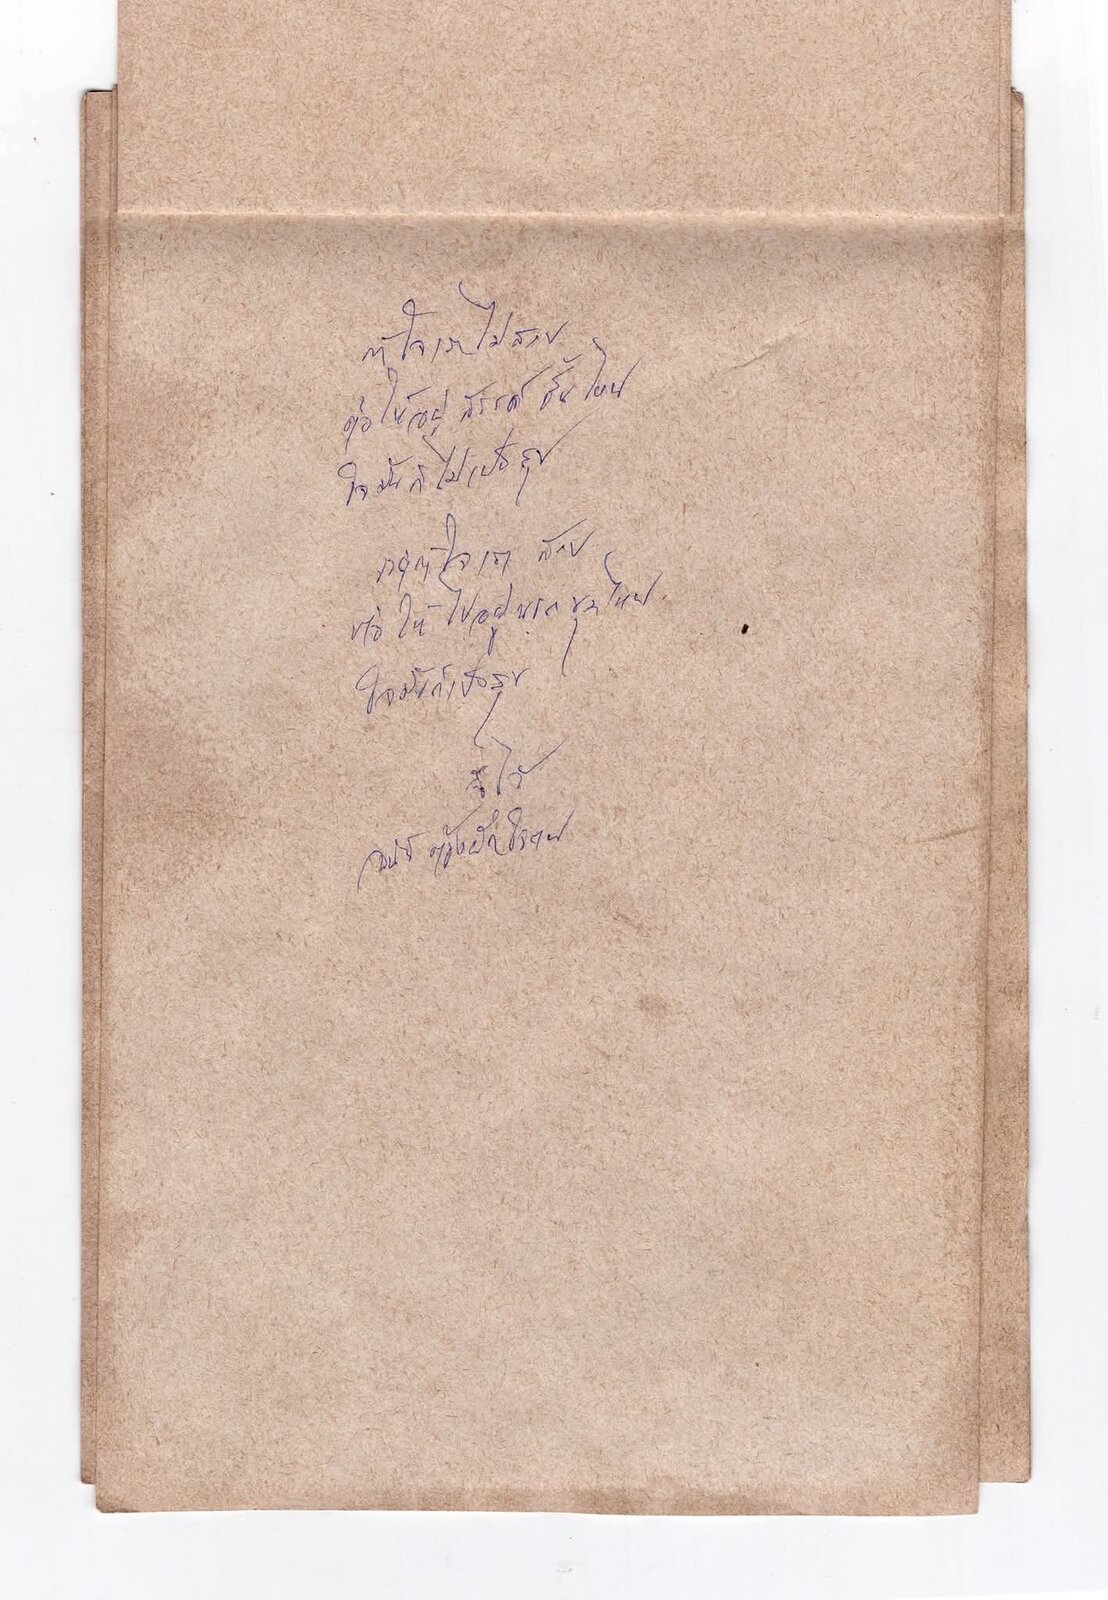 ถ้าใจเราไม่สบาย
ต่อให้อยู่ สวรรค์ ชั้นไหน
ใจมันก็ไม่เป็นสุข
แต่ถ้าใจเรา สบาย
ต่อให้ ไปอยู่นรกขุมไหน
ใจมันก็เป็นสุข
ต้องฝึกใจตน